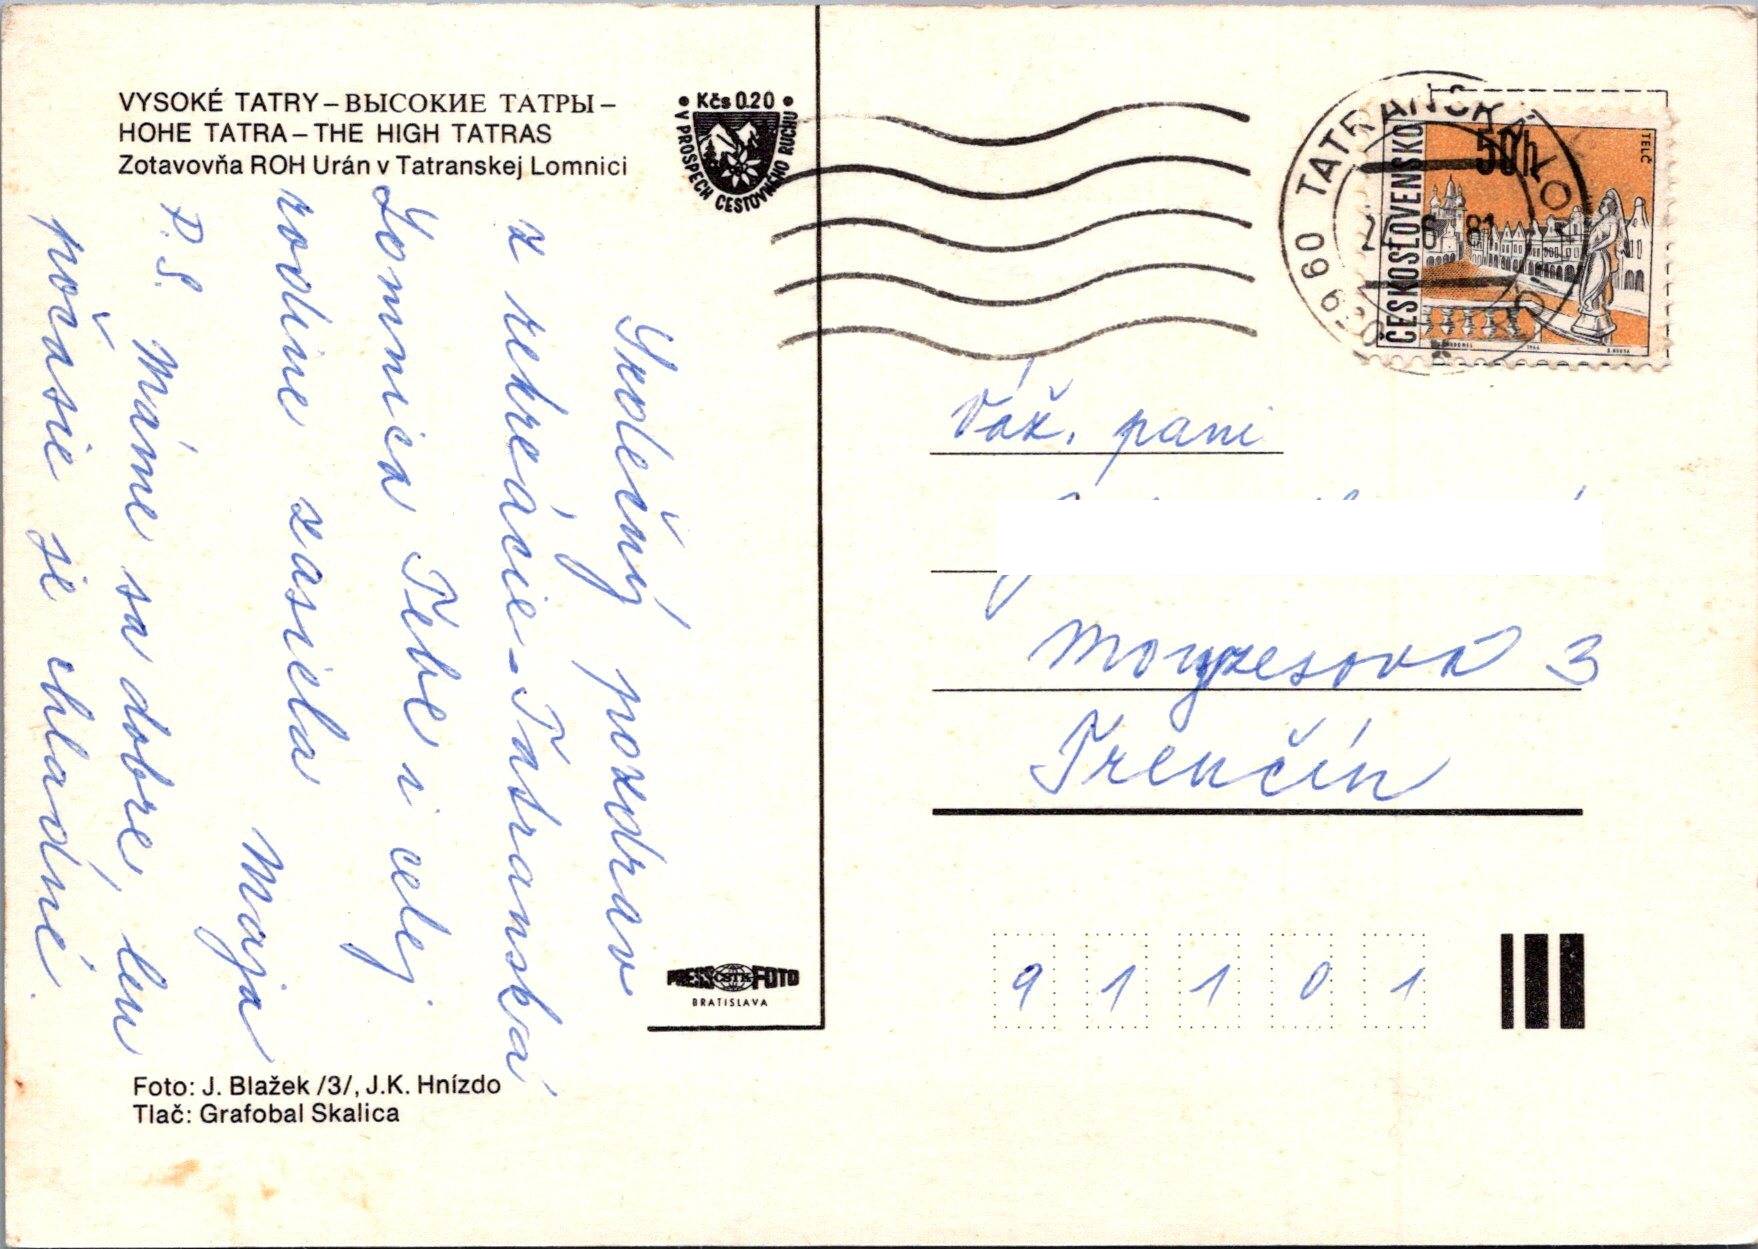 VYSOKÉ TATRY – ВЫСОКИЕ ТАТРЫ –
HOHE TATRA – THE HIGH TATRAS
Zotavovňa ROH Urán v Tatranskej Lomnici
• Kčs 0.20 •
V PROSPECH CESTOVNÉHO RUCHU
Srdečný pozdrav
z rekreácie – Tatranská
Lomnica Tebe i celej
rodine zasiela
Maja
P.S. Máme sa dobre, len
počasie je chladné.
PRESS ČSTK FOTO
BRATISLAVA
Foto: J. Blažek /3/, J.K. Hnízdo
Tlač: Grafobal Skalica
059 60 TATRANSKÁ LO
6 81
ČESKOSLOVENSKO
50h
TELČ
1966
Váž. pani
Moyzesová 3
Trenčín
9 1 1 0 1